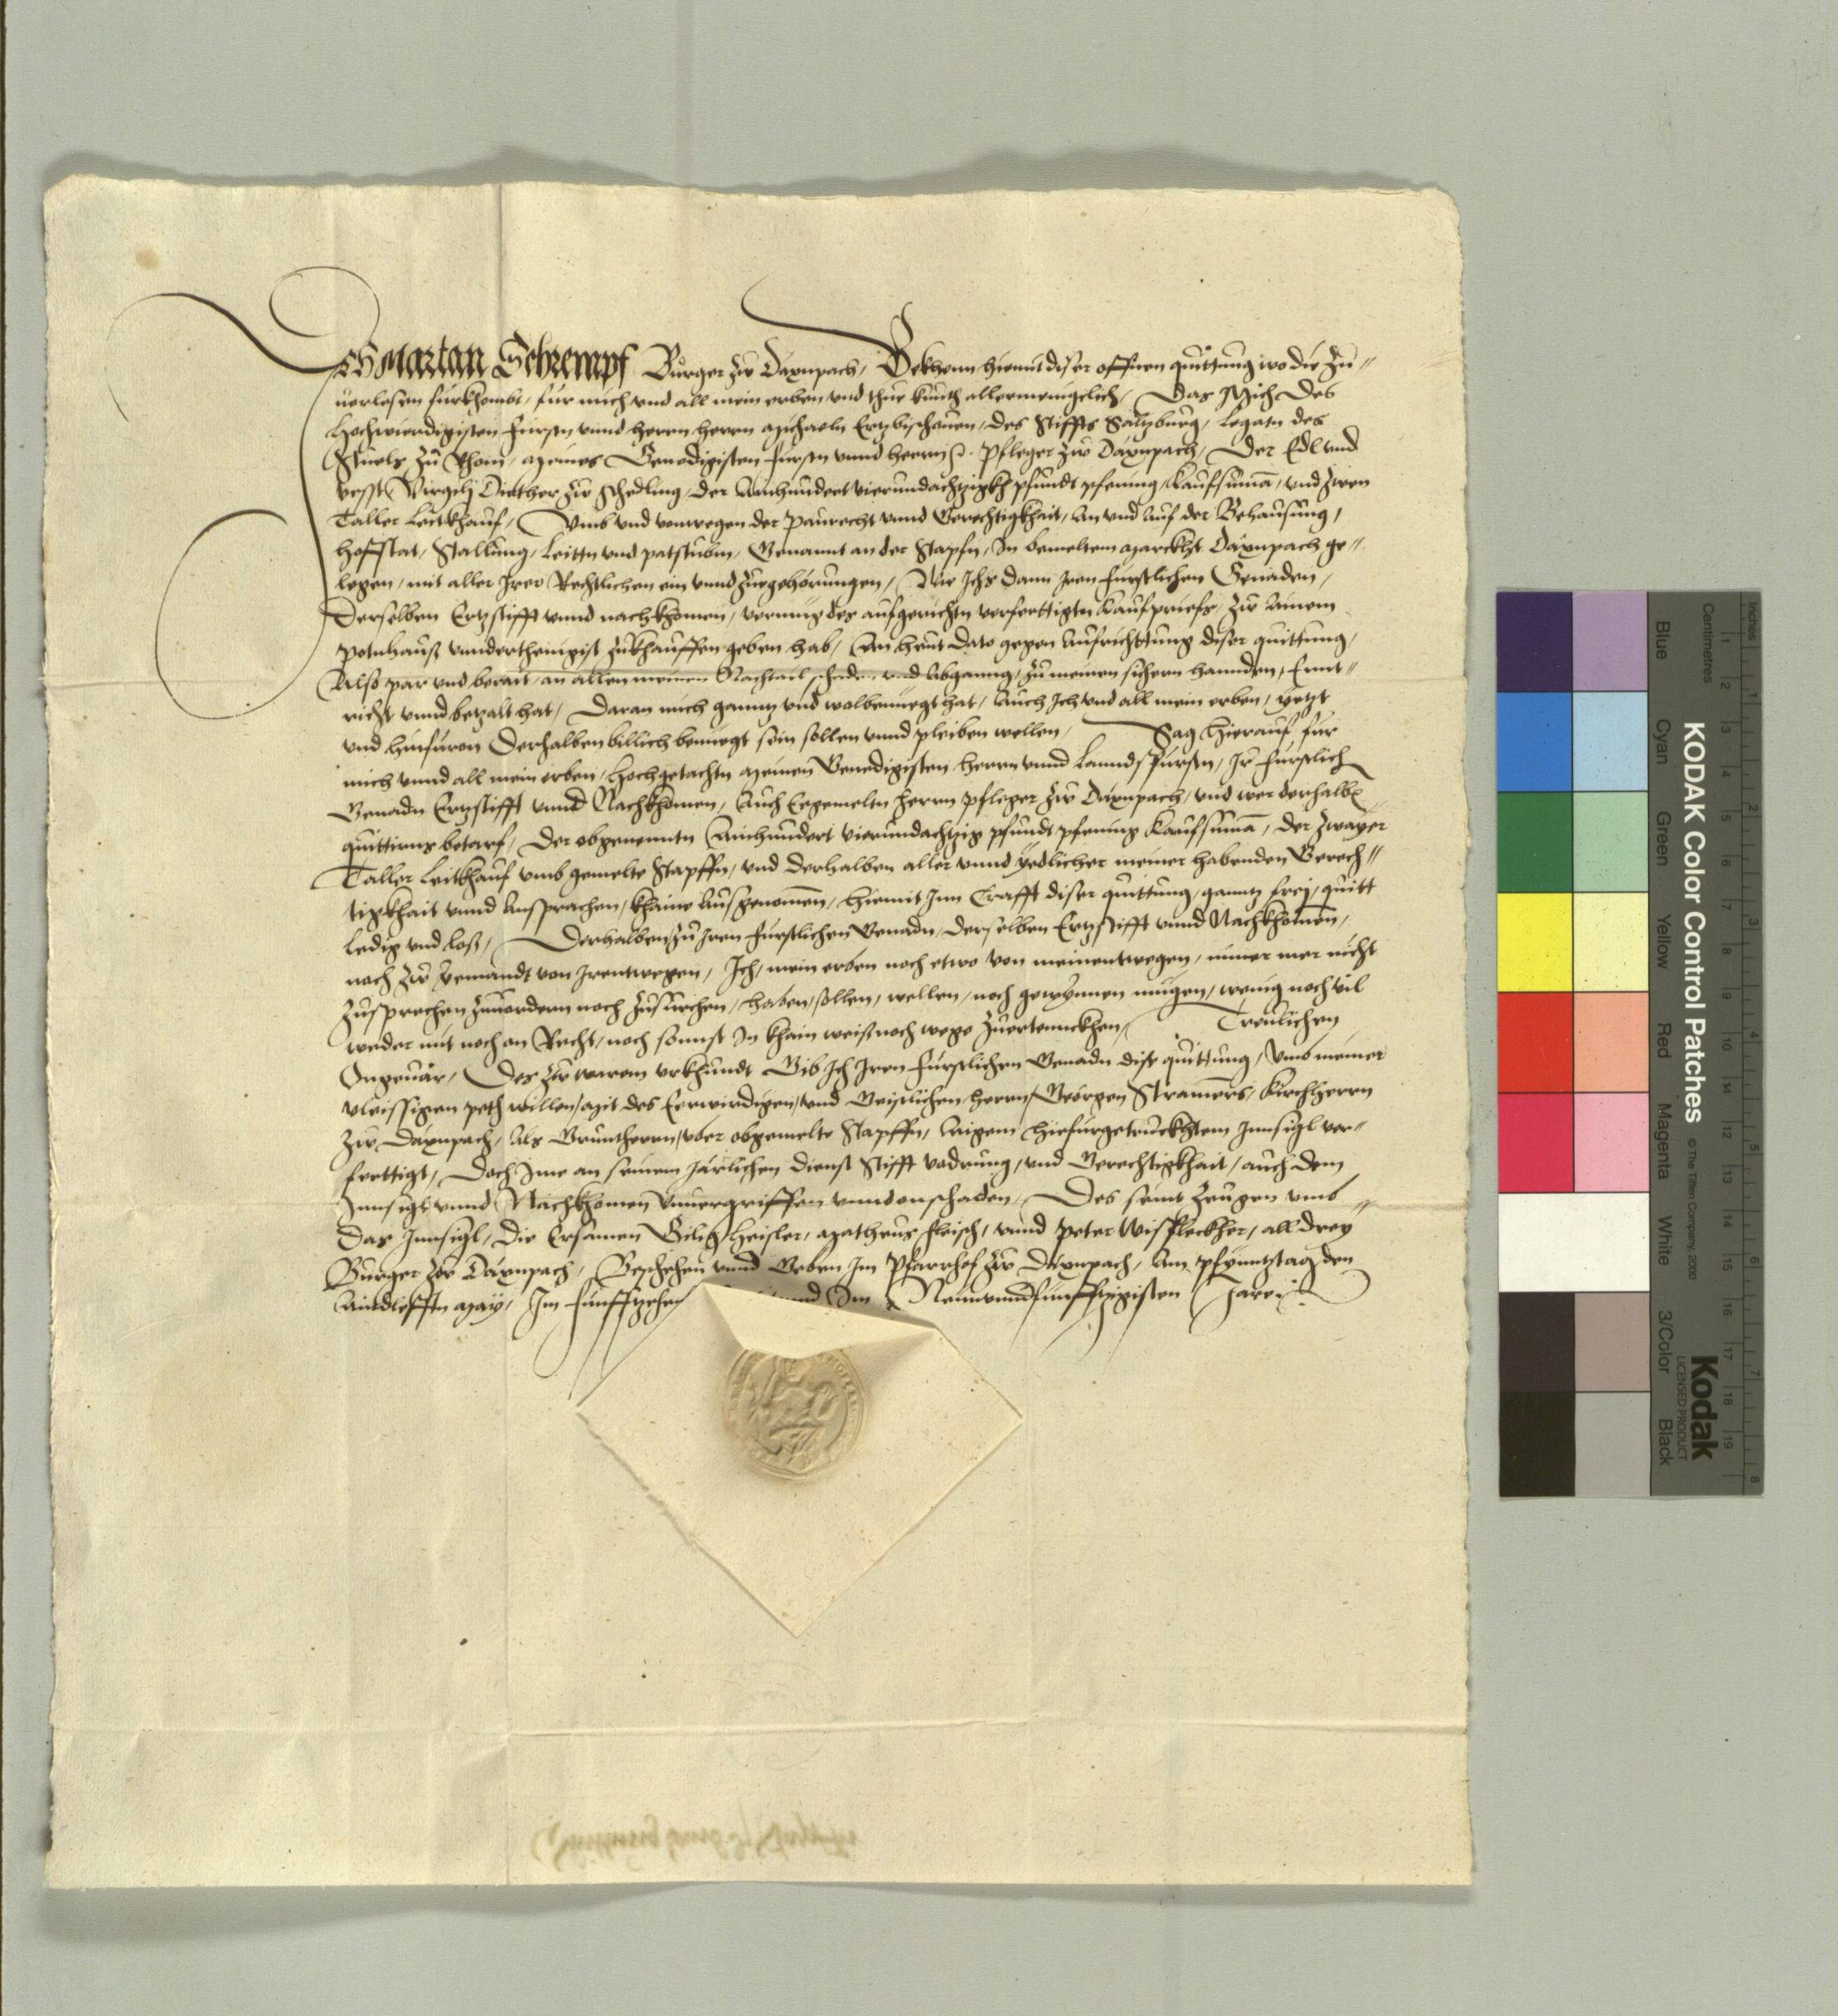 Ich Martan Schrempf Burger zw Däxnpach, Bekhenn hiemit diser offnen quittung wo die zu=
uerlesen furkhombt, fur mich vnd all mein erben vnd thue kunth allermenigclich, Das Mich des
Hochwierdigisten Fursten vnnd herrn herrn Michaeln Ertzbischauen, des Stiffts Saltzburg, Legatn des
Stuels zu Rhom, meines Genedigisten Fursten vnnd herrn Pfleger zw Däxnpach, Der Edl vnd
vesst Virgilj Diether zw Schedling, der Ainhundert vierundachtzigkh pfundt pfening Kaufsuma, vnd zwen
Taller Leitkhauf, Vmb vnd vonwegen der Paurecht vnnd Gerechtigkhait, an vnd auf der Behausung,
Hofstat, Stallung, Leittn vnd patstubm, Genannt an der Stapfn, In bemeltem Marckht Däxnpach ge=
legen, mit aller Irer Rechtlichen ein vnnd zuegehorungen, Wie Ichs dann Iren Furstlichen Genaden,
Derselben Ertzstifft vnnd nachkhomen, vermug des aufgerichtn verferttigtn Kaufpriefs, zw ainem
Potnhauß vnnderthenigist zukhauffen geben hab, An heut dato gegen aufrichtung diser quittung,
Also par vnd berait, an allen meinen Nachtail schaden vnd abganng, zu meinen sichern hannden, Ennt=
richt vnnd betzalt hat, Daran mich ganntz vnd wolbenuegt hat, Auch Ich vnd all mein erben, yetzt
vnd hinfuron Derhalben billich benuegt sein sollen vnnd pleiben wellen, Sag Hierauf fur
mich vnnd all mein erben, Hochgedachtn Meinen Genedigisten herrn vnnd Lanndsfursten, Ir Furstlich
Genadn Ertzstifft vnnd Nachkhomen, Auch Eegemeltn herrn Pfleger zw Däxnpach, vnd wer derhalbn
quittirns betarf, Der obgenenntn Ainhundert vierundachtzig pfundt pfening Kaufsuma, der zwayer
Taller Leitkhauf vmb gemelte Stapffn, vnd derhalben aller vnnd yedlicher meiner habenden Gerech=
tigkhait vnnd Ansprachen, khaine ausgenomen, Hiemit Inn Crafft diser quittung, ganntz frej, quitt
ledig vnd loß, Derhalben zu Iren Furstlichen Genadn, derselben Ertzstifft vnnd Nachkhomen,
noch zw yemandt von Irentwegen, Ich, mein erben noch etwo von meinentwegen, nimer mer nicht
zusprechen zuuordern noch zusuechen, haben, sollen, wellen, noch gewynnen mugen, wenig noch vil
weder mit noch an Recht, noch sonnst In khain weiß noch wege Zuertennckhen, Treulichen
Ongeuär, Des zw warem vrkhundt Gib Ich Iren Furstlichen Genadn dise quittung, vmb meiner
vleissigen peth willen, Mit des Eerwirdigen, vnd Geistlichen herrn, Georgen Stramers, Kirchherrn
zw Däxnpach, Als Gruntherrn, vber obgemelte Stapffn, Aigem hiefurgetruckhtem Innsigl ver=
ferttigt, Doch Ime an seinem Järlichen dienst Stifft vodrung, vnd Gerechtigkhait, auch dem
Innsigl vnnd Nachkhomen vnuergriffen vnnd onschaden, Des seint Zeugen vmb
Das Innsigl, Die Ersamen Gilig Heisler, Matheus Fleisch, vnnd Peter Wispleckher, all drey
Burger zw Däxnpach, Beschehen vnnd Geben Im Pfarrhof zw Däxnpach, Am Pfynnztag den
Aindlefftn May, Im Funffzehen vnnd Im Neunvnndfunffzigisten Jare